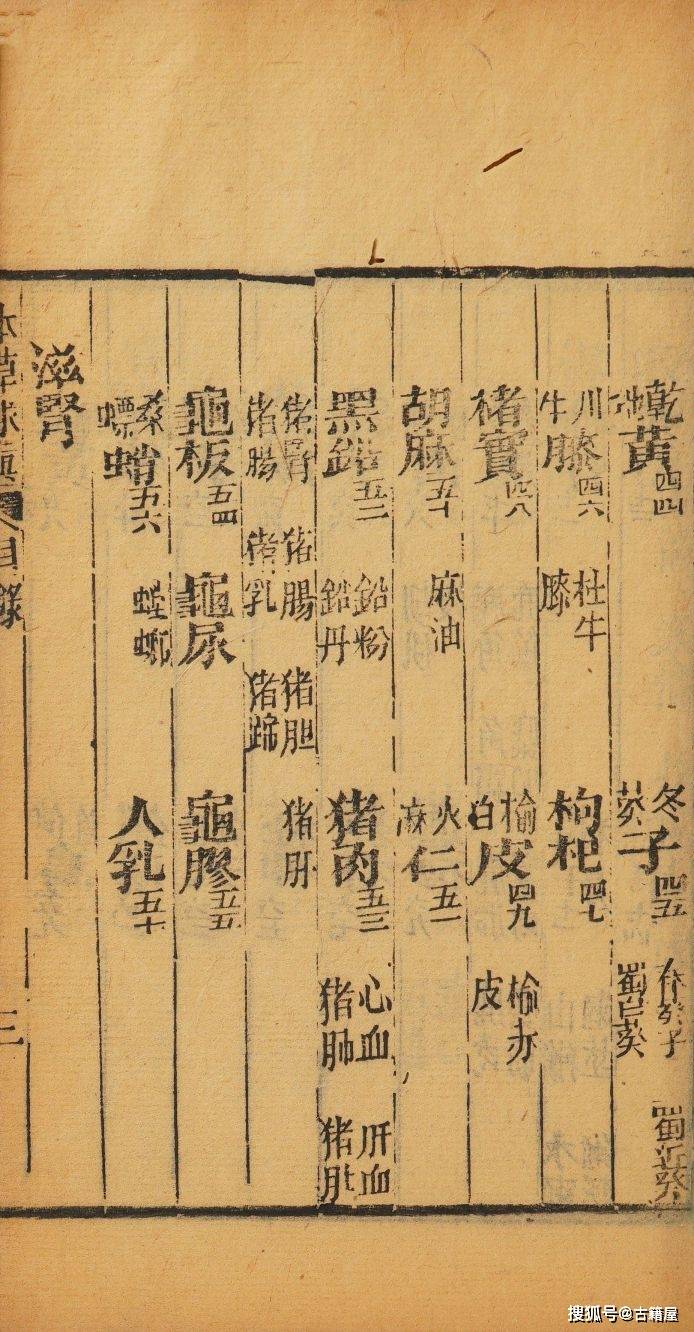 乾地黃四四 冬葵子四五
川牛膝四六 杜牛膝 枸杞四七
楮實四八 榆白皮四九 榆赤皮
胡麻五十 麻油 火麻仁五一
黑鉛五二 鉛粉 鉛丹 猪肉五三 心血 猪肺 肝血 猪肚
猪腎 猪腸 猪腸 猪乳 猪胆 猪蹄 猪肝
龜板五四 龜尿 龜膠五五
桑螵蛸五六 螳螂 人乳五十
滋腎
本草求真 目錄 三
搜狐号@古籍屋